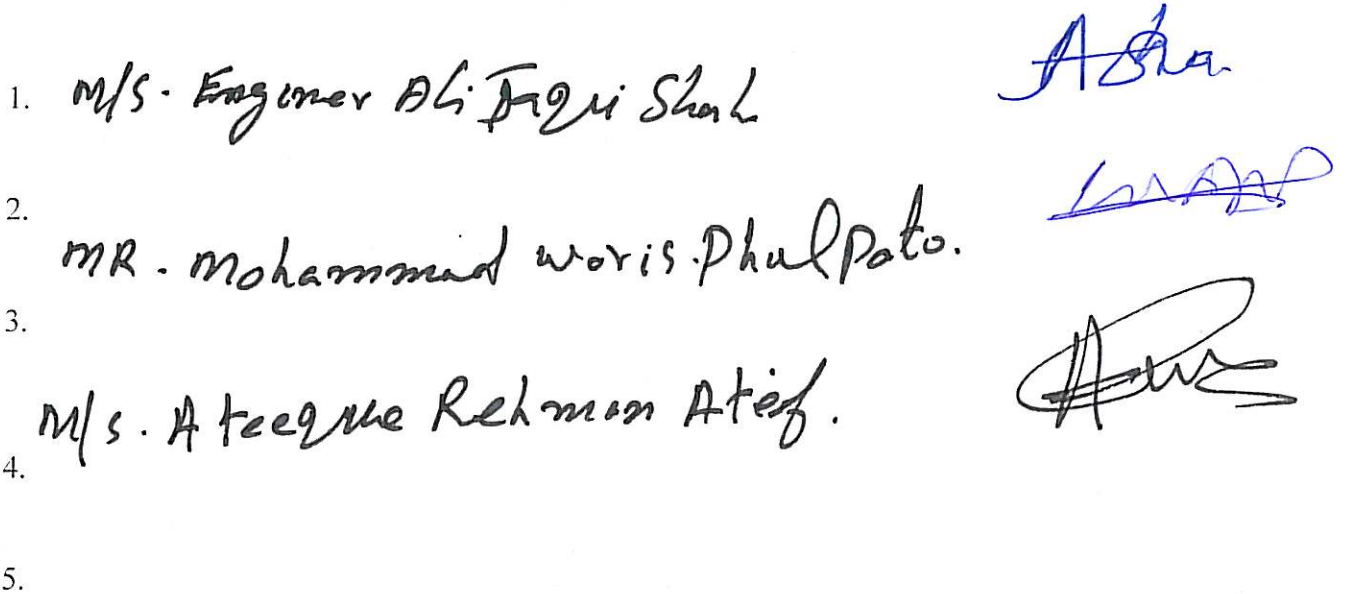 1. M/S. Engineer Ali Taqui Shah
2.
MR. Mohammad Waris Phulpoto.
3.
M/s. Ateeque Rehman Atief.
4.
5.